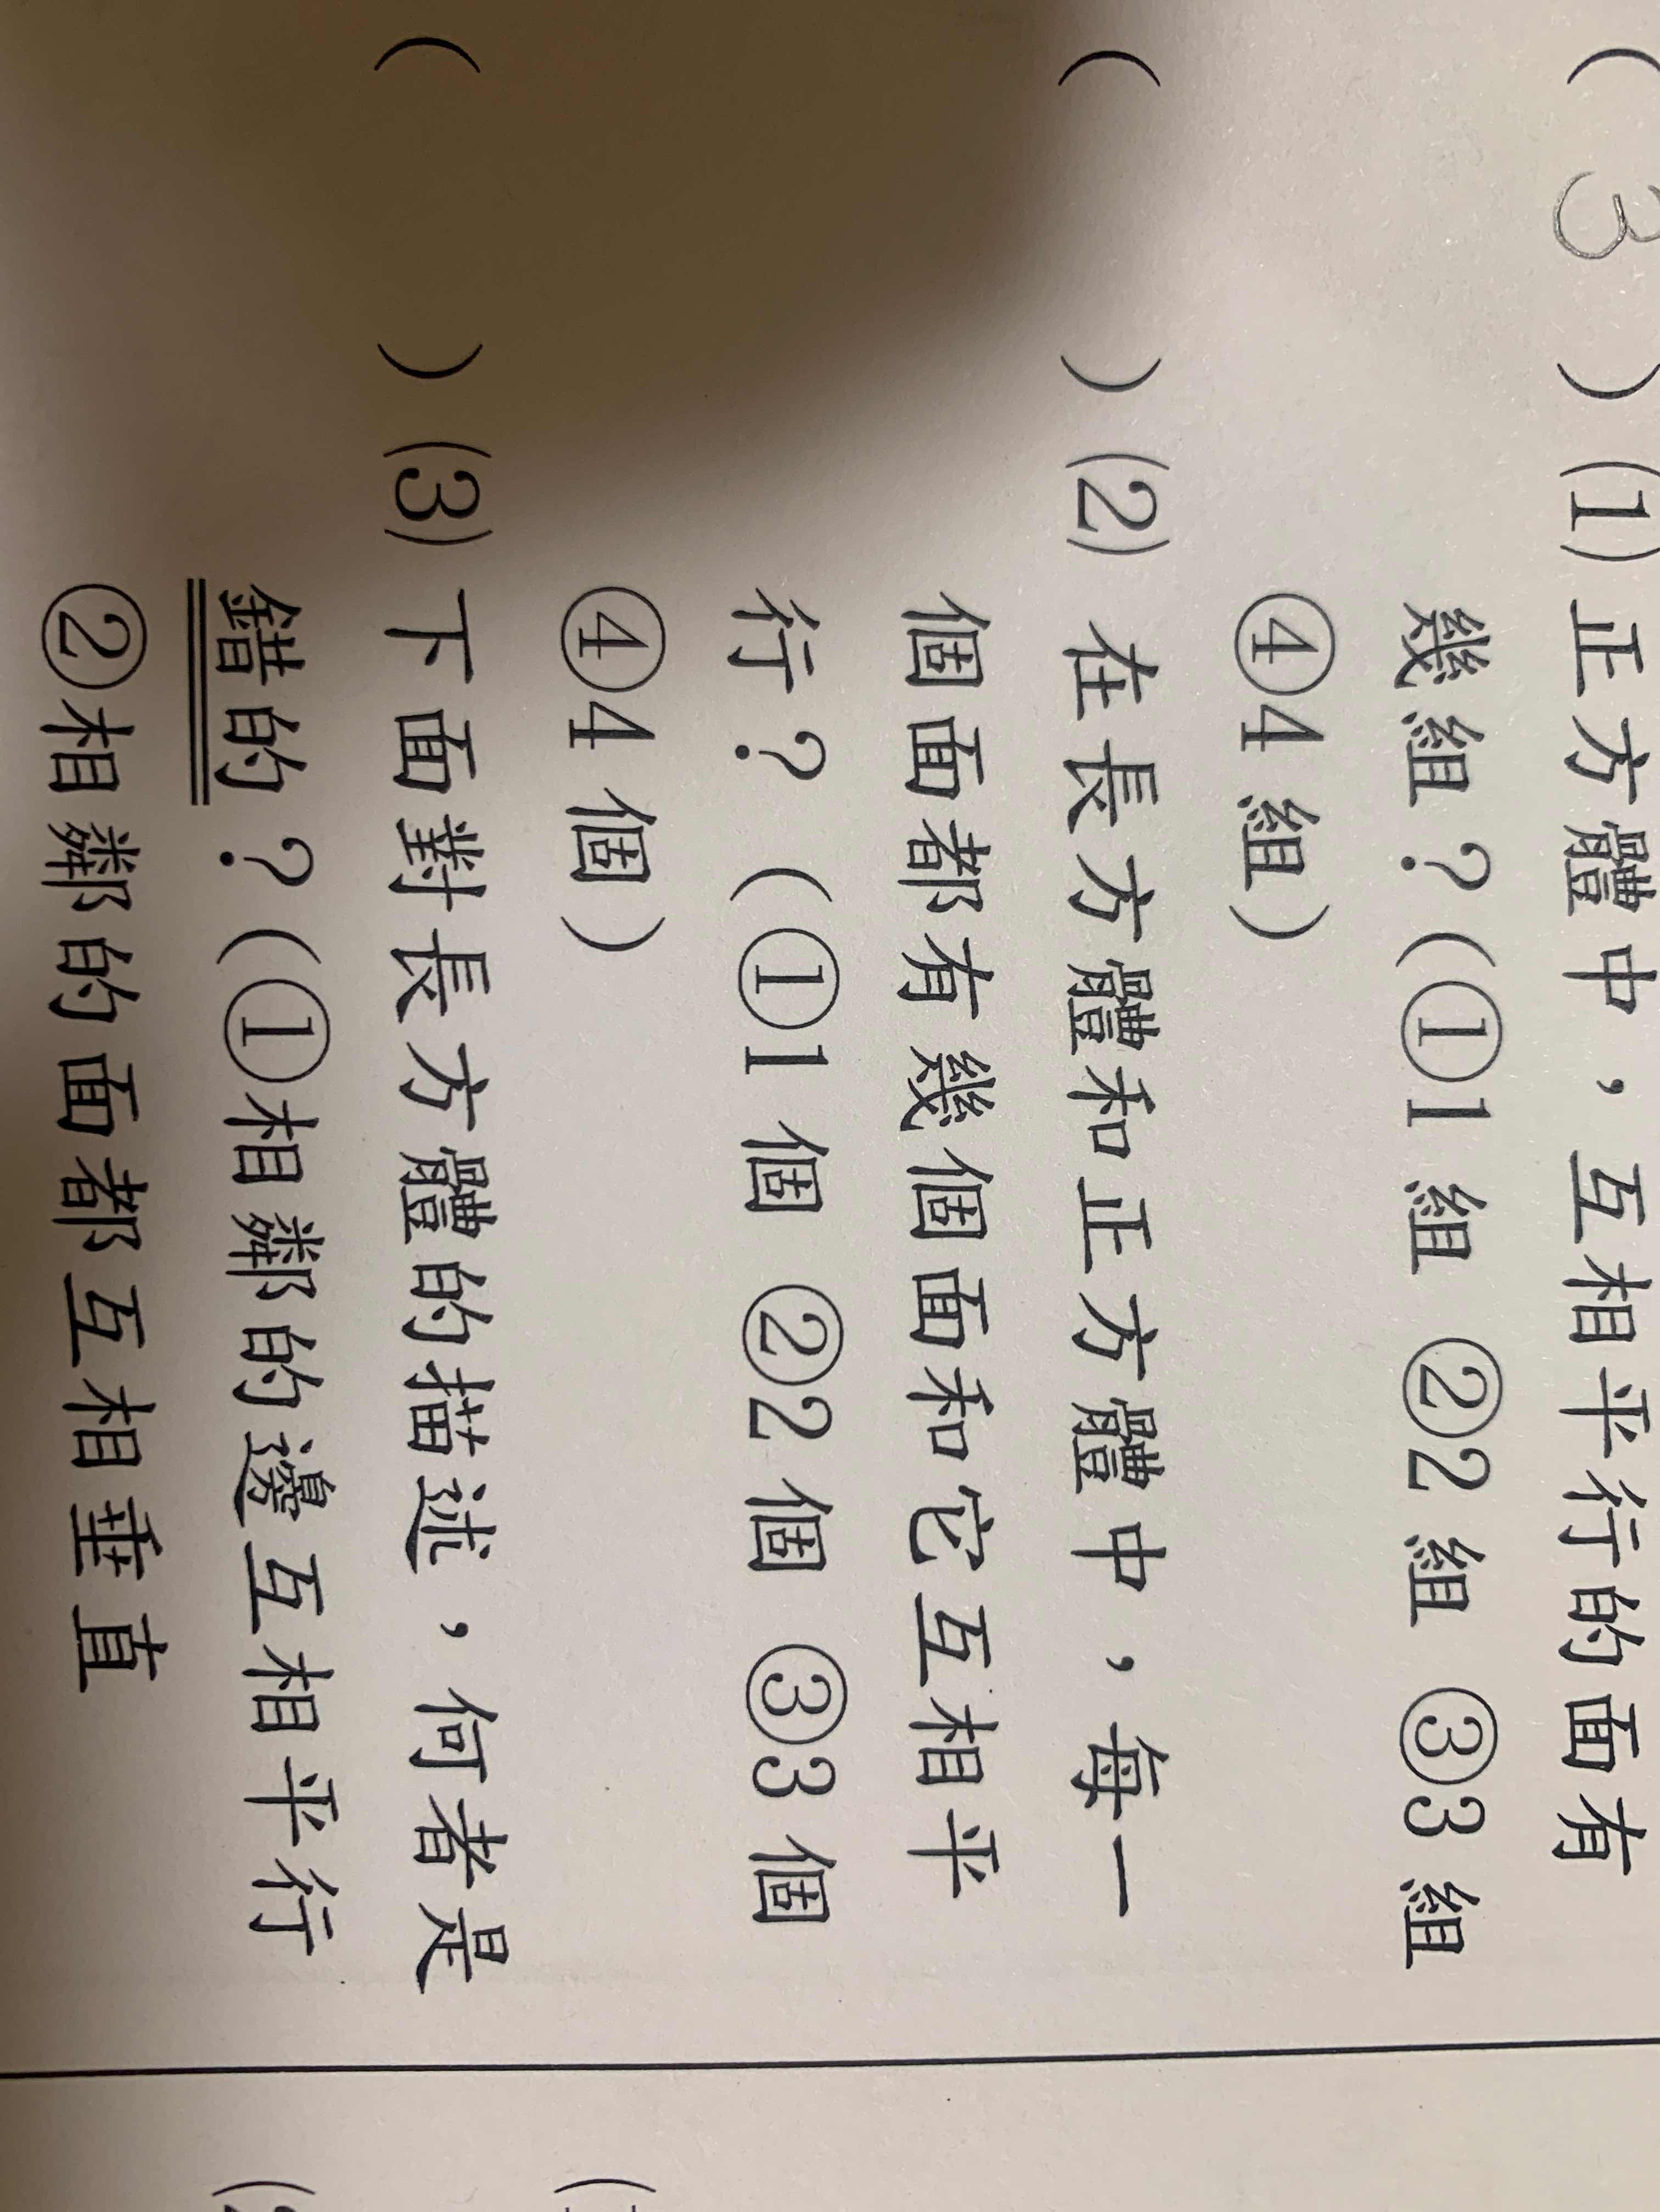 ( 3 ) (1) 正方體中，互相平行的面有
幾組？(①1 組 ②2 組 ③3 組
④4 組)
(　) (2) 在長方體和正方體中，每一
個面都有幾個面和它互相平
行？(①1 個 ②2 個 ③3 個
④4 個)
(　) (3) 下面對長方體的描述，何者是
錯的？(①相鄰的邊互相平行
②相鄰的面都互相垂直